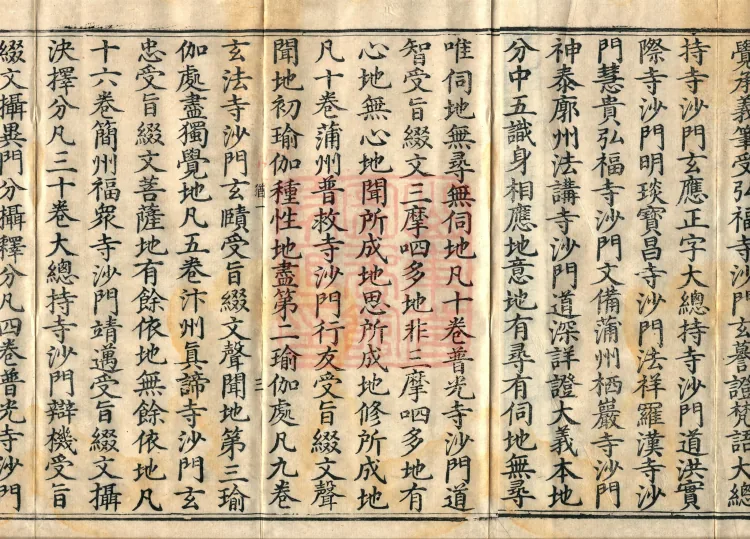 覺承義筆受弘福寺沙門玄謩證梵語大總
持寺沙門玄應正字大總持寺沙門道洪實
際寺沙門明琰寶昌寺沙門法祥羅漢寺沙
門慧貴弘福寺沙門文備蒲州栖巖寺沙門
神泰廓州法講寺沙門道深詳證大義本地
分中五識身相應地意地有尋有伺地無尋
唯伺地無尋無伺地凡十卷普光寺沙門道
智受旨綴文三摩呬多地非三摩呬多地有
心地無心地聞所成地思所成地修所成地
凡十卷蒲州普救寺沙門行友受旨綴文聲
聞地初瑜伽種性地盡第二瑜伽處凡九卷
猶 三
玄法寺沙門玄賾受旨綴文聲聞地第三瑜
伽處盡獨覺地凡五卷汴州眞諦寺沙門玄
忠受旨綴文菩薩地有餘依地無餘依地凡
十六卷簡州福眾寺沙門靖邁受旨綴文攝
決擇分凡三十卷大總持寺沙門辯機受旨
綴文攝異門分攝釋分凡四卷普光寺沙門